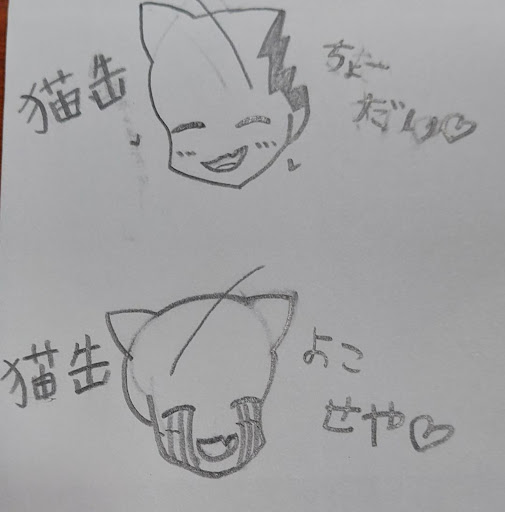 猫缶
ちょーだい♡
猫缶
よこせや♡